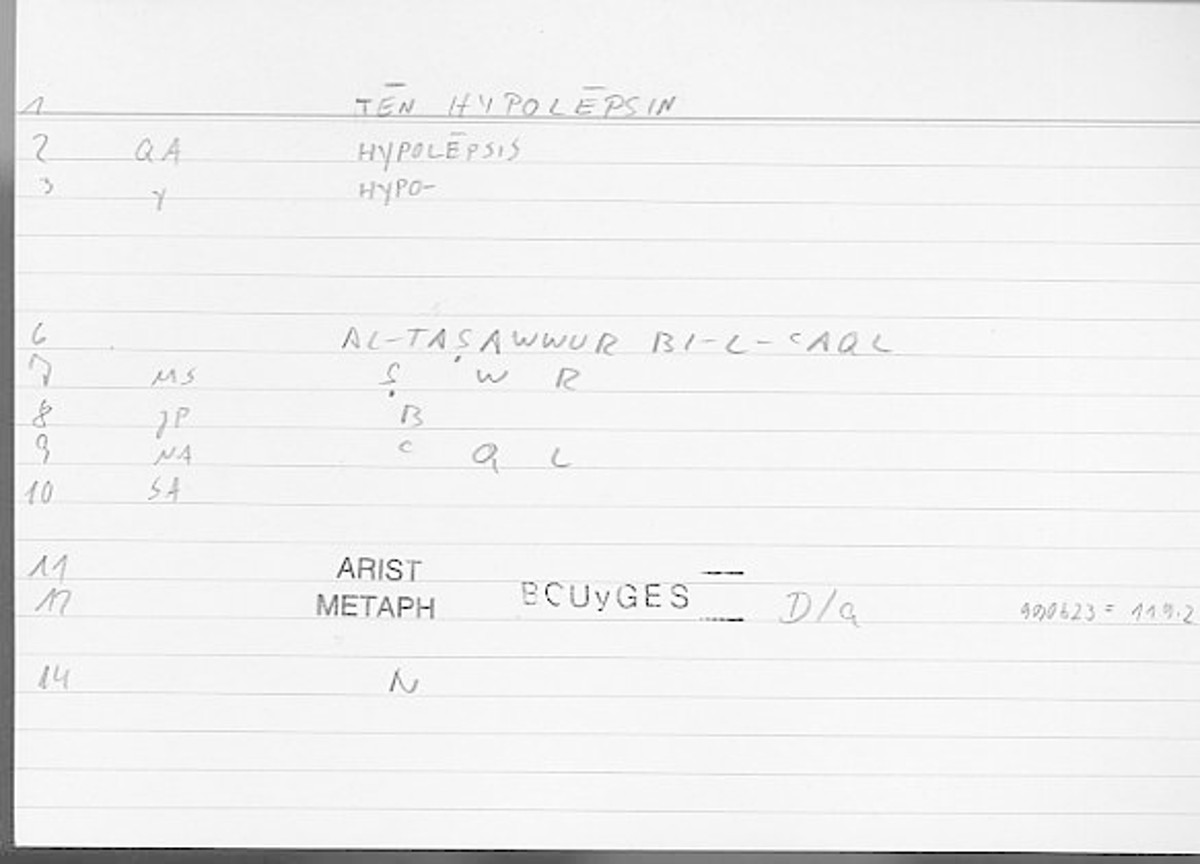 1 TĒN HYPOLĒPSIN
2 QA HYPOLĒPSIS
3 γ HYPO-
6 AL-TAṢAWWUR BI-L-ʿAQL
7 MS Ṣ W R
8 JP B
9 NA ʿ Q L
10 SA
11 ARIST
12 METAPH BCUyGES D/a = 119.2
14 N